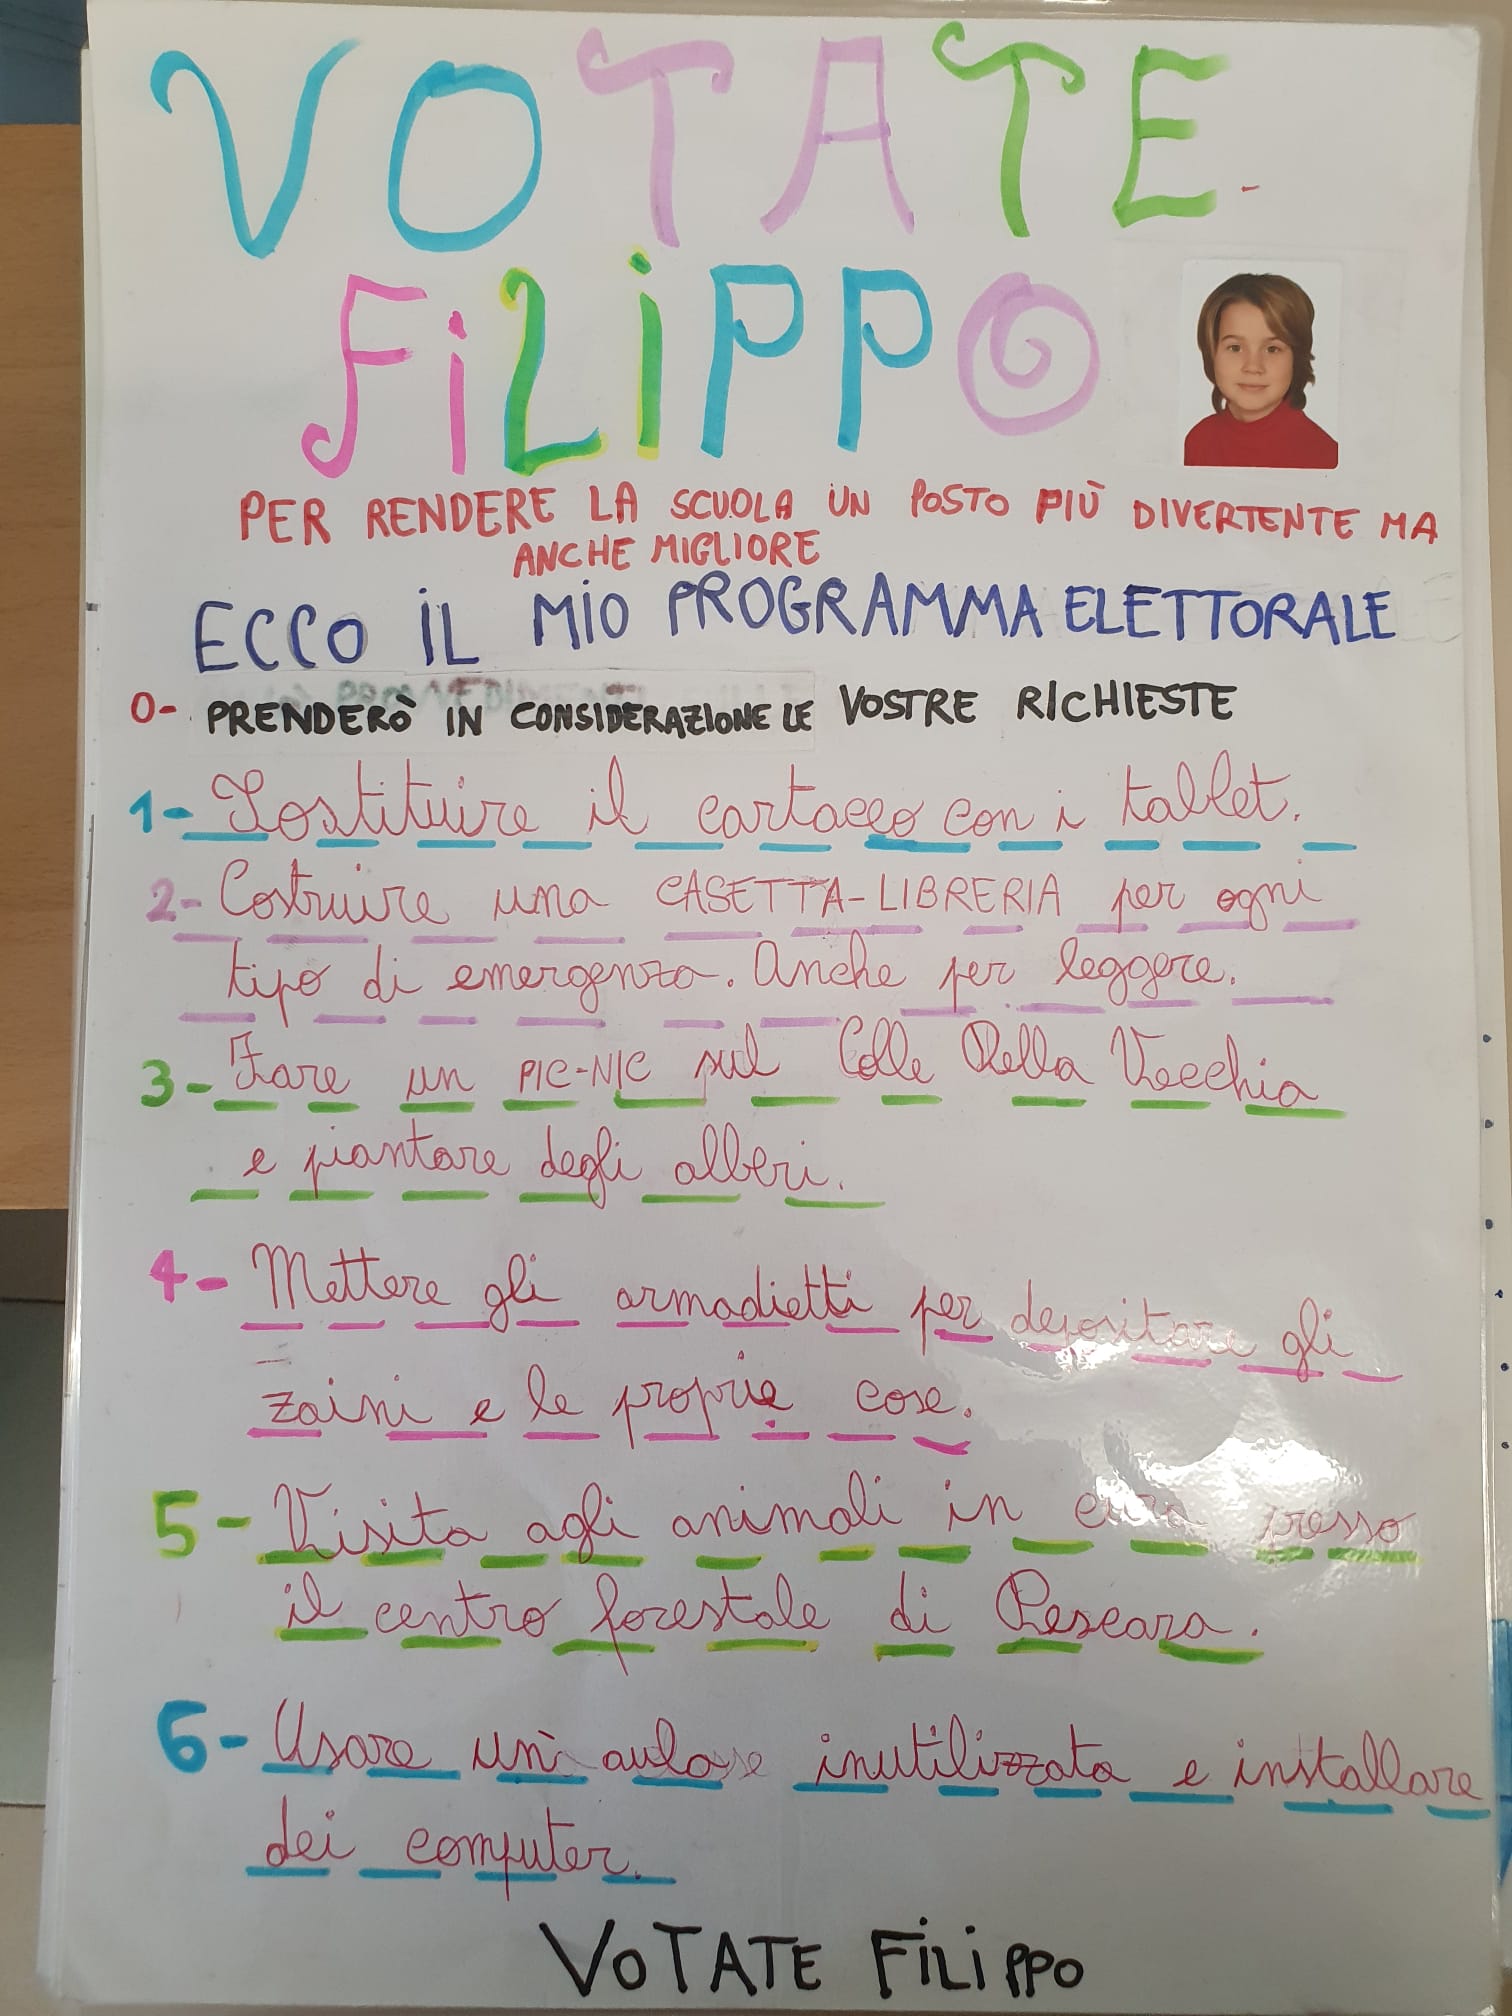 VOTATE
FiLiPPO
PER RENDERE LA SCUOLA UN POSTO PIÙ DIVERTENTE MA
ANCHE MIGLIORE
ECCO IL MIO PROGRAMMA ELETTORALE
0- PRENDERÒ IN CONSIDERAZIONE LE VOSTRE RICHIESTE
1- Sostituire il cartaceo con i tablet.
2- Costruire una CASETTA-LIBRERIA per ogni
tipo di emergenza. Anche per leggere.
3- Fare un PIC-NIC sul Colle Della Vecchia
e piantare degli alberi.
4- Mettere gli armadietti per depositare gli
zaini e le proprie cose.
5- Visita agli animali in cura presso
il centro forestale di Pescara.
6- Usare un' aula inutilizzata e installare
dei computer.
VOTATE FILIPPO